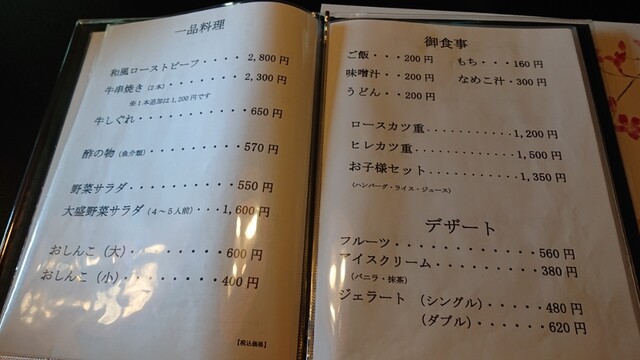 一品料理
和風ローストビーフ・・・・・ 2,800 円
牛串焼き（2 本）・・・・・・・ 2,300 円
※1本追加は 1,200 円です
牛しぐれ・・・・・・・・・・・650 円
酢の物（魚介類）・・・・・・・・・570 円
野菜サラダ・・・・・・・・・・550 円
大盛野菜サラダ（4～5人前）・・・1,600 円
おしんこ（大）・・・・・・・・・600 円
おしんこ（小）・・・・・・・・・400 円
【税込価格】
御食事
ご飯・・・200 円　もち・・・160 円
味噌汁・・200 円　なめこ汁・300 円
うどん・・200 円
ロースカツ重・・・・・・・・・・・・1,200 円
ヒレカツ重・・・・・・・・・・・・・1,500 円
お子様セット・・・・・・・・・・・・1,350 円
（ハンバーグ・ライス・ジュース）
デザート
フルーツ・・・・・・・・・・・・560 円
アイスクリーム・・・・・・・・・380 円
（バニラ・抹茶）
ジェラート　（シングル）・・・・・480 円
（ダブル）・・・・・・620 円